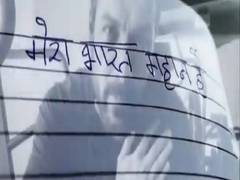 मेरा भारत महान है